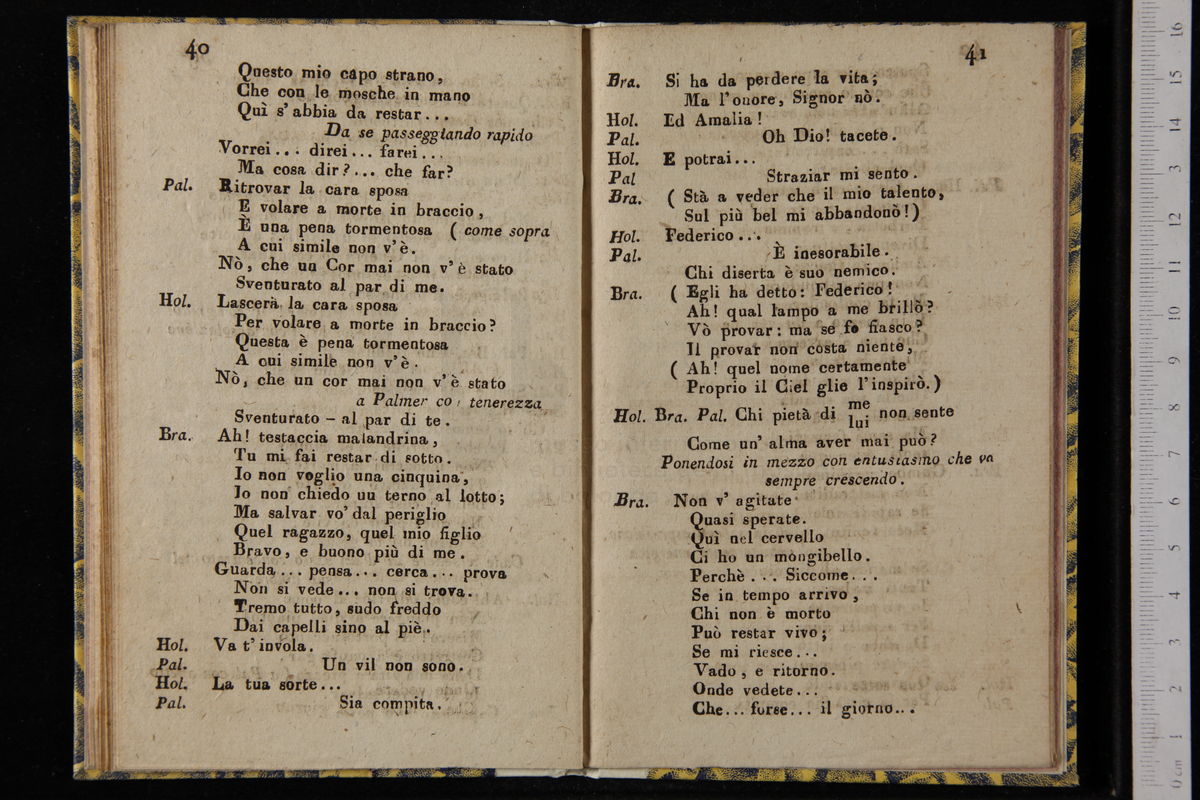 40
Questo mio capo strano,
Che con le mosche in mano
Quì s'abbia da restar...
Da se passeggiando rapido
Vorrei... direi... farei...
Ma cosa dir?... che far?
Pal. Ritrovar la cara sposa
E volare a morte in braccio,
È una pena tormentosa ( come sopra
A cui simile non v'è.
Nò, che un Cor mai non v'è stato
Sventurato al par di me.
Hol. Lascerà la cara sposa
Per volare a morte in braccio?
Questa è pena tormentosa
A cui simile non v'è.
Nò, che un cor mai non v'è stato
a Palmer co tenerezza
Sventurato - al par di te.
Bra. Ah! testaccia malandrina,
Tu mi fai restar di sotto.
Io non voglio una cinquina,
Io non chiedo uu terno al lotto;
Ma salvar vo' dal periglio
Quel ragazzo, quel mio figlio
Bravo, e buono più di me.
Guarda... pensa... cerca... prova
Non si vede... non si trova.
Tremo tutto, sudo freddo
Dai capelli sino al piè.
Hol. Va t'invola.
Pal. Un vil non sono.
Hol. La tua sorte...
Pal. Sia compita.
41
Bra. Si ha da perdere la vita;
Ma l'onore, Signor nò.
Hol. Ed Amalia!
Pal. Oh Dio! tacete.
Hol. E potrai...
Pal Straziar mi sento.
Bra. ( Stà a veder che il mio talento,
Sul più bel mi abbandonò!)
Hol. Federico...
Pal. È inesorabile.
Chi diserta è suo nemico.
Bra. ( Egli ha detto: Federico!
Ah! qual lampo a me brillò?
Vò provar: ma se fo fiasco?
Il provar non costa niente,
( Ah! quel nome certamente
Proprio il Ciel glie l'inspirò.)
Hol. Bra. Pal. Chi pietà di me lui non sente
Come un' alma aver mai può?
Ponendosi in mezzo con entusiasmo che va
sempre crescendo.
Bra. Non v'agitate
Quasi sperate.
Quì nel cervello
Ci ho un mongibello.
Perchè... Siccome...
Se in tempo arrivo,
Chi non è morto
Può restar vivo;
Se mi riesce...
Vado, e ritorno.
Onde vedete...
Che... forse... il giorno...
16
15
14
13
12
11
10
9
8
7
6
5
4
3
2
1
0 cm